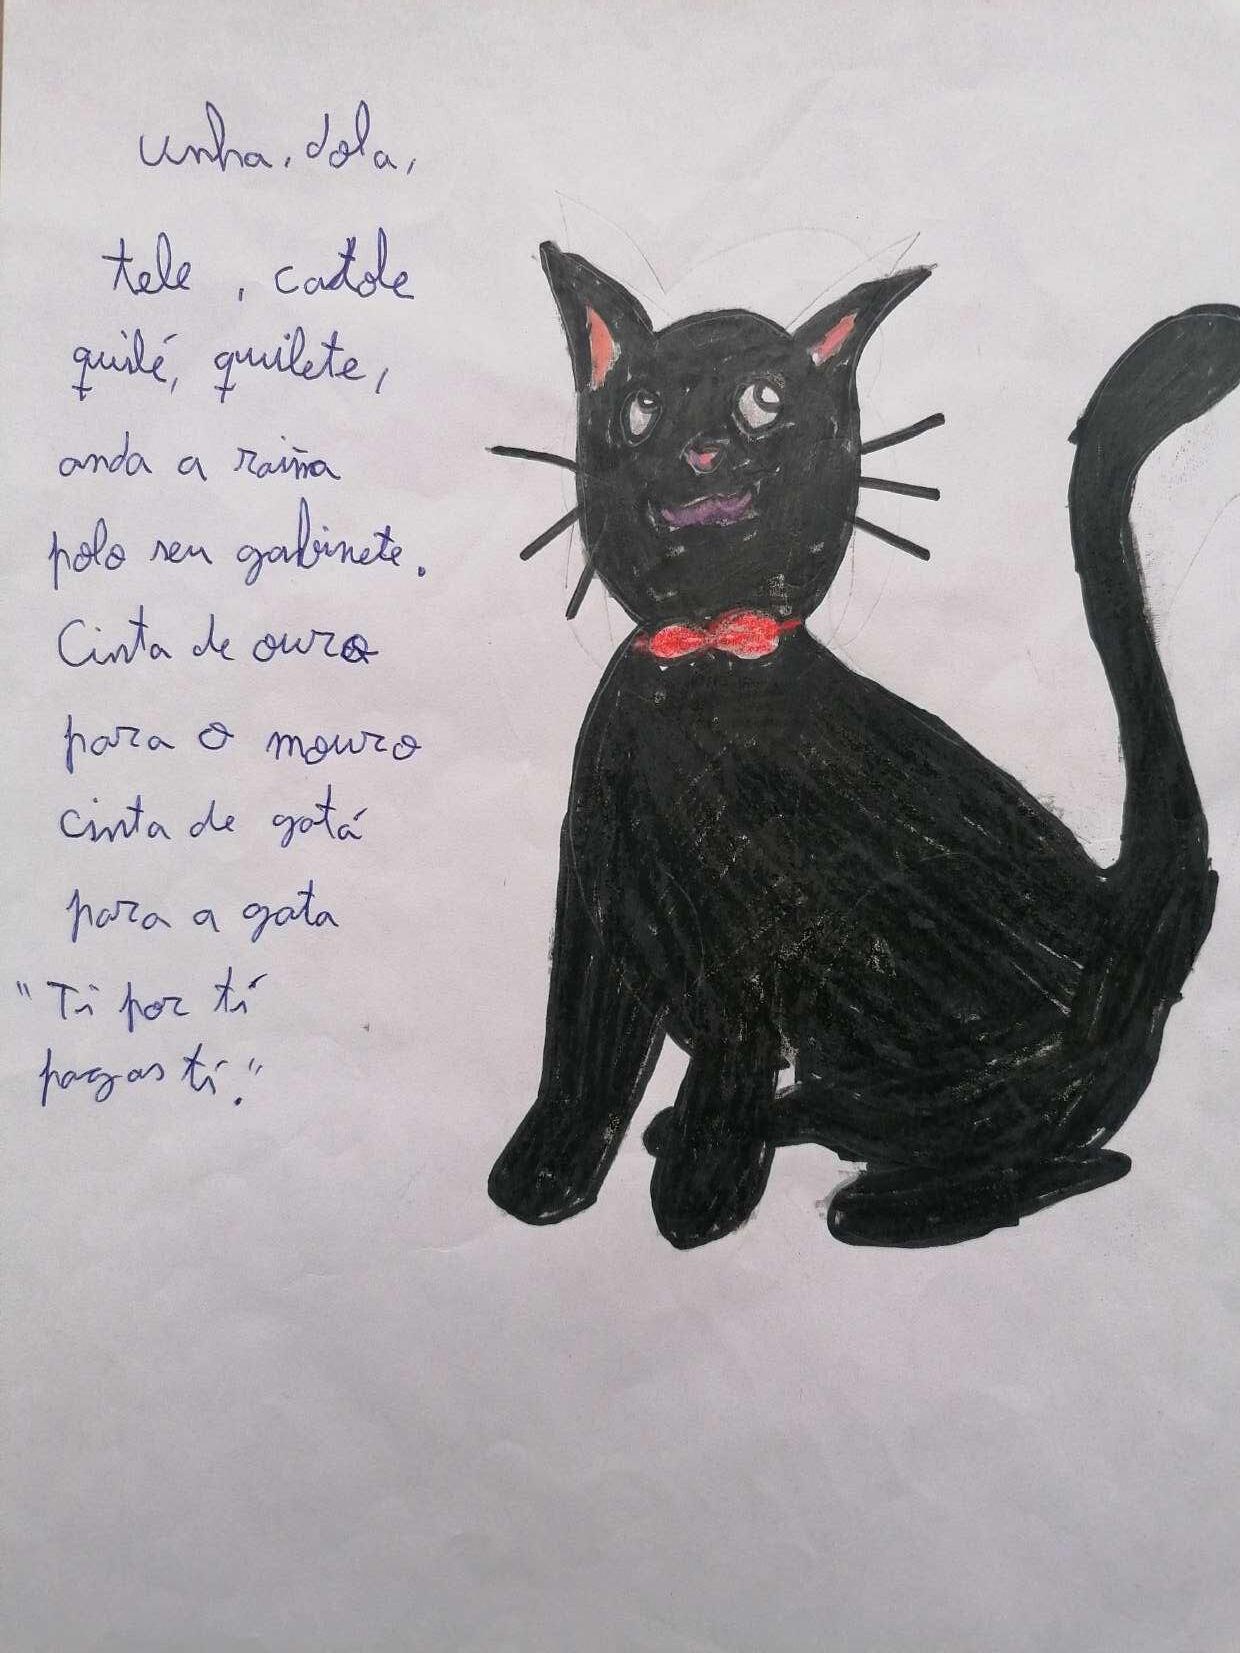 unha, dola,
tele, catole
quilé, quilete,
anda a raíña
polo seu gabinete.
Cinta de ouro
para o mouro
cinta de gatá
para a gata
"Ti por tí
pagas tí."